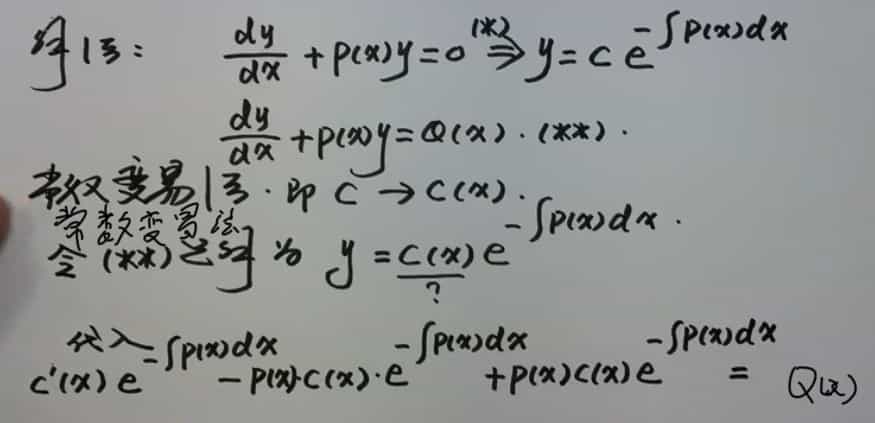 解法: dy/dx + P(x)y = 0 (*)⇒ y = C e^{-∫P(x)dx}
dy/dx + P(x)y = Q(x). (**).
常数变易法. 即 C → C(x).
常数变易法
令 (**) 之解 为 y = C(x) e^{-∫P(x)dx}.
?
代入
C'(x) e^{-∫P(x)dx} - P(x)·C(x)·e^{-∫P(x)dx} + P(x)C(x)e^{-∫P(x)dx} = Q(x)